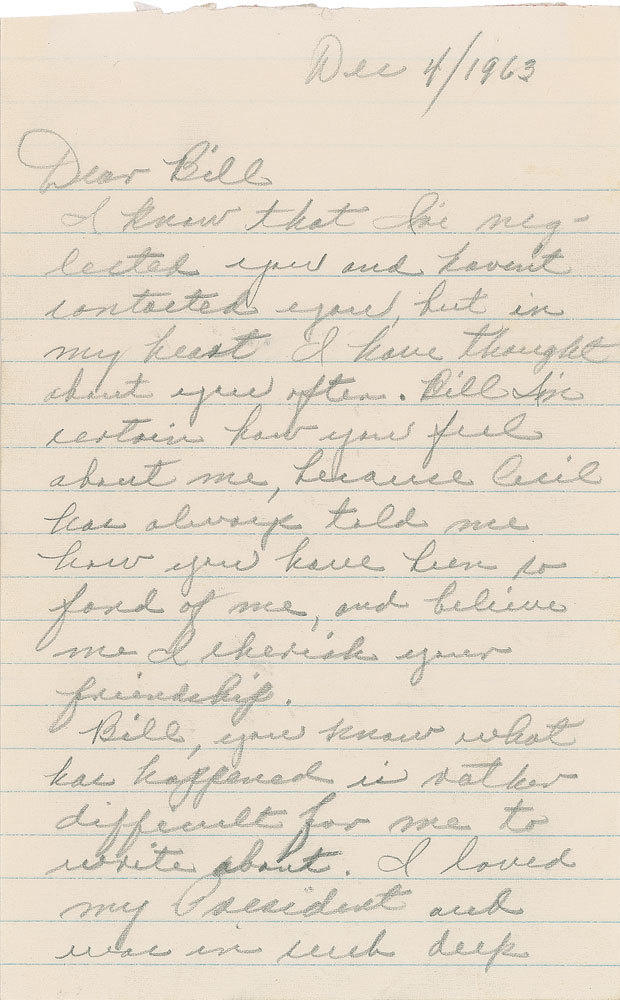 Dec 4/1963
Dear Bill
I know that I've neg-
lected you and havent
contacted you, but in
my heart I have thought
about you often. Bill I'm
certain how you feel
about me, because Cecil
has always told me
how you have been so
fond of me, and believe
me I cherish your
friendship.
Bill, you know what
has happened is rather
difficult for me to
write about. I loved
my President and
was in such deep